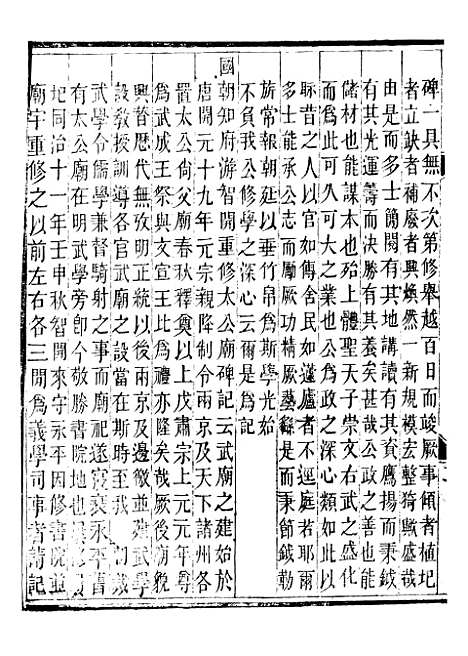 碑一具無不次第修舉越百日而竣厥事傾者植圮
者立缺者補廢者興煥然一新規模宏整猗歟盛哉
由是而多士簡閱有其地講讀有其資鷹揚而秉鉞
有其光運籌而決勝有其義矣甚哉公政之善也能
儲材也能謀本也於上體聖天子崇文右武之盛化
而為此可久可大之業也公為政之深心類如此以
眎昔之人以官如傳舍民如蘧廬者不逕庭者耶爾
多士能承公志而勵厥功精厥藝繇是而秉節鉞勒
旂常報朝廷以垂竹帛為斯學光始
不負我公修學之深心云爾是為記
國朝知府游智開重修太公廟碑記云武廟之建始於
唐開元十九年元宗親降制令兩京及天下諸州各
置太公尚父廟春秋釋奠以上戊肅宗上元元年尊
為武成王祭與文宣王比為禮亦隆矣哉厥後廟貌
興替歷代無攷明正統以後兩京及邊徼並建武學
設教授訓導各官武廟之設當在斯時至我 朝裁
武學令儒學兼督騎射之事而廟祀遂寖衰永平舊
有太公廟在明武學旁卽今敬勝書院地也
圯同治十一年壬申秋智開來守永平因修書院並
廟宇重修之以前左右各三間為義學司事者請記